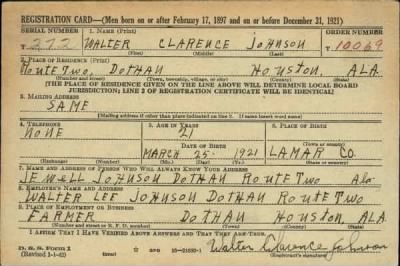 REGISTRATION CARD—(Men born on or after February 17, 1897 and on or before December 31, 1921)
SERIAL NUMBER 1. NAME (Print) ORDER NUMBER
T 272 WALTER CLARENCE JOHNSON T 10069
(First) (Middle) (Last)
2. PLACE OF RESIDENCE (Print)
ROUTE TWO, DOTHAN HOUSTON, ALA
(Number and street) (Town, township, village, or city) (County) (State)
[THE PLACE OF RESIDENCE GIVEN ON THE LINE ABOVE WILL DETERMINE LOCAL BOARD
JURISDICTION; LINE 2 OF REGISTRATION CERTIFICATE WILL BE IDENTICAL]
3. MAILING ADDRESS
SAME
[Mailing address if other than place indicated on line 2. If same insert word same]
4. TELEPHONE 5. AGE IN YEARS 6. PLACE OF BIRTH
NONE 21
DATE OF BIRTH (Town or county)
MARCH 25 1921 LAMAR CO.
(Exchange) (Number) (Mo.) (Day) (Yr.) (State or country)
7. NAME AND ADDRESS OF PERSON WHO WILL ALWAYS KNOW YOUR ADDRESS
JEWELL JOHNSON DOTHAN ROUTE TWO Ala
8. EMPLOYER'S NAME AND ADDRESS
WALTER LEE JOHNSON DOTHAN ROUTE TWO
9. PLACE OF EMPLOYMENT OR BUSINESS
FARMER DOTHAN HOUSTON ALA
(Number and street or R. F. D. number) (Town) (County) (State)
I AFFIRM THAT I HAVE VERIFIED ABOVE ANSWERS AND THAT THEY ARE TRUE.
D. S. S. FORM 1
(Revised 1-1-42) Walter Clarence Johnson
(Registrant's signature)